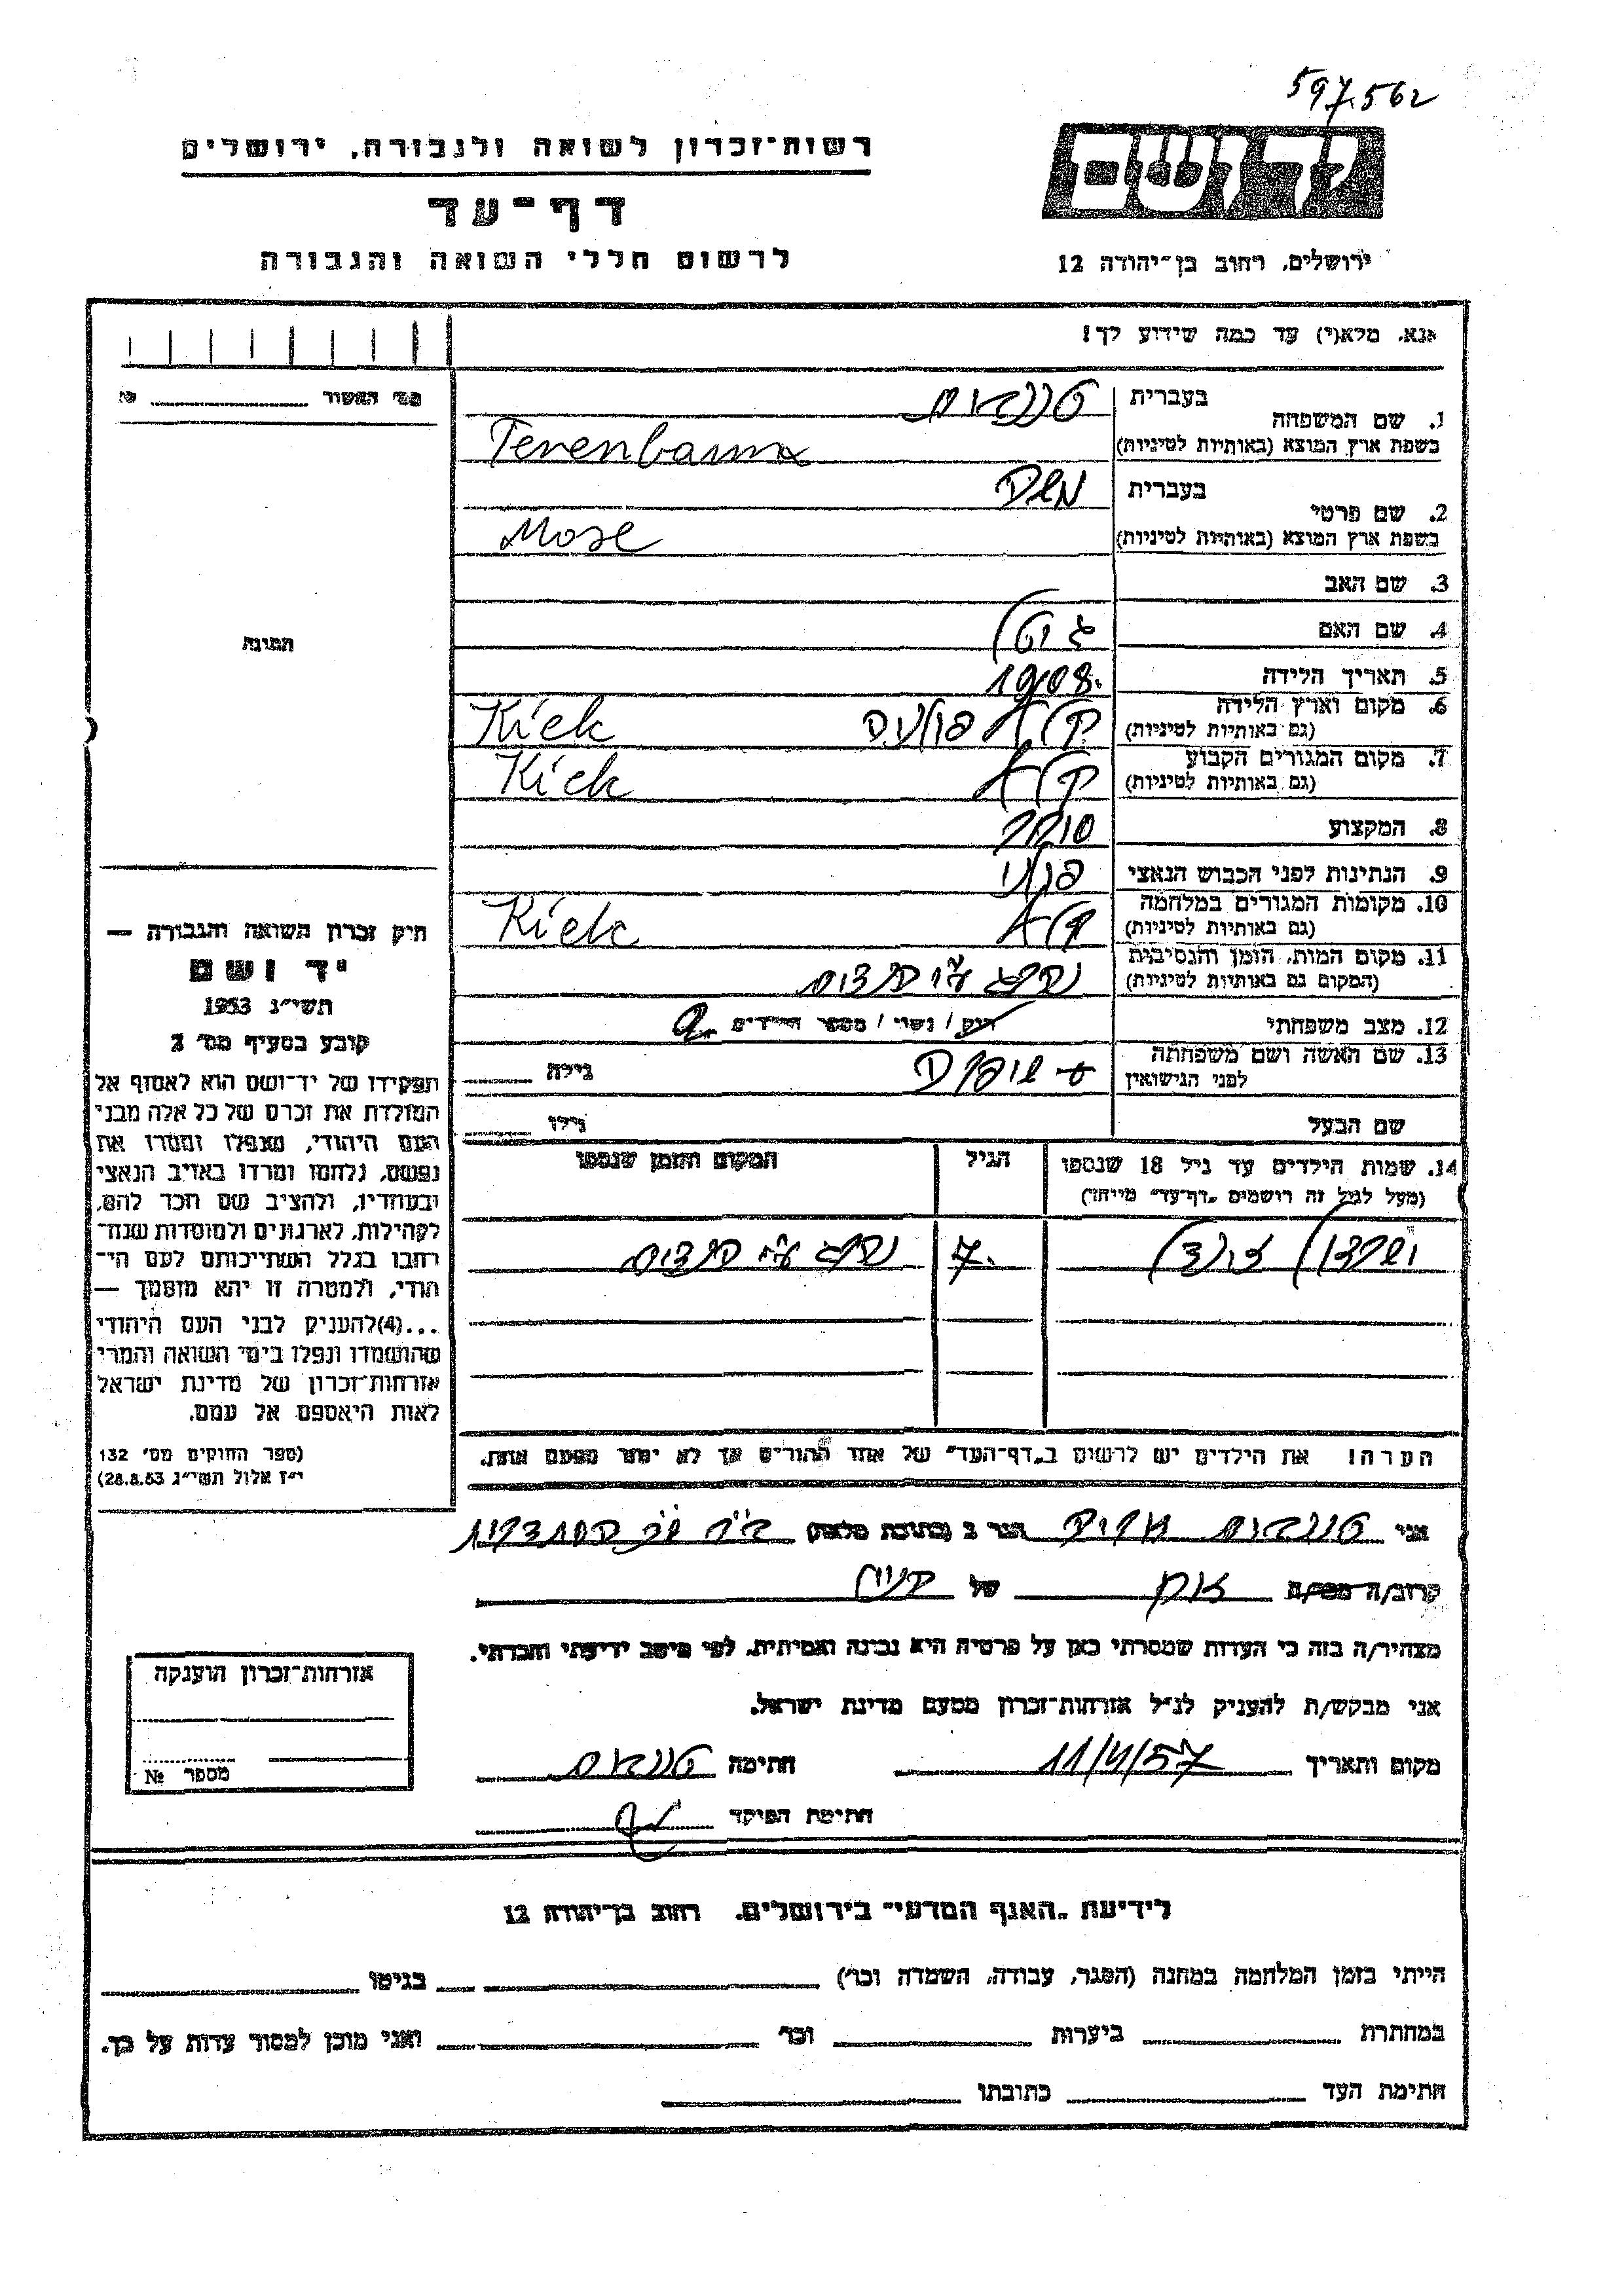 597.562
יד ושם
ירושלים, רחוב בן־יהודה 12
רשות־זכרון לשואה ולגבורה, ירושלים
דף־עד
לרשום חללי השואה והגבורה
אנא, מלא(י) עד כמה שידוע לך!
מס׳ האשור №
1. שם המשפחה
בעברית טננבוים
בשפת ארץ המוצא (באותיות לטיניות) Tenenbaum
2. שם פרטי
בעברית משה
בשפת ארץ המוצא (באותיות לטיניות) Mose
3. שם האב
4. שם האם
5. תאריך הלידה 1908.
6. מקום וארץ הלידה
(גם באותיות לטיניות) Kielc
7. מקום המגורים הקבוע
(גם באותיות לטיניות) Kielc
8. המקצוע סוחר
9. הנתינות לפני הכבוש הנאצי פולני
10. מקומות המגורים במלחמה
(גם באותיות לטיניות) Kielc
11. מקום המות, הזמן והנסיבות
(המקום גם באותיות לטיניות) נהרג ע״י הנצים
12. מצב משפחתי רוק / נשוי / מספר הילדים
13. שם האשה ושם משפחתה
לפני הנישואין
גילה
שם הבעל גילו
14. שמות הילדים עד גיל 18 שנספו
(מעל לגיל זה רושמים „דף־עד״ מיוחד)
הגיל
המקום והזמן שנספו
7. נהרג ע״י הנצים
הערה! את הילדים יש לרשום ב„דף־העד״ של אחד ההורים אך לא יותר מפעם אחת.
תמונה
חוק זכרון השואה והגבורה —
יד ושם
תשי״ג 1953
קובע בסעיף מס׳ 2
תפקידו של יד־ושם הוא לאסוף אל
המולדת את זכרם של כל אלה מבני
העם היהודי, שנפלו ומסרו את
נפשם, נלחמו ומרדו באויב הנאצי
ובעוזריו, ולהציב שם וזכר להם,
לקהילות, לארגונים ולמוסדות שנח־
רבו בגלל השתייכותם לעם הי־
הודי, ולמטרה זו יהא מוסמך —
...(4) להעניק לבני העם היהודי
שהושמדו ונפלו בימי השואה והמרי
אזרחות־זכרון של מדינת ישראל
לאות היאספם אל עמם.
(ספר החוקים מס׳ 132
י״ז אלול תשי״ג 28.8.53)
אני טננבוים הגר ב (כתובת מלאה)
קרוב/ה מכר/ה של
מצהיר/ה בזה כי העדות שמסרתי כאן על פרטיה היא נכונה ואמיתית, לפי מיטב ידיעתי והכרתי.
אני מבקש/ת להעניק לנ״ל אזרחות־זכרון מטעם מדינת ישראל.
מקום ותאריך 11/4/57 חתימה טננבוים
חתימת הפוקד
אזרחות־זכרון הוענקה
מספר №
לידיעת „האגף המדעי״ בירושלים, רחוב בן־יהודה 12
הייתי בזמן המלחמה במחנה (הסגר, עבודה, השמדה וכו׳) בגיטו
במחתרת ביערות וכו׳ ואני מוכן למסור עדות על כך.
חתימת העד כתובתו